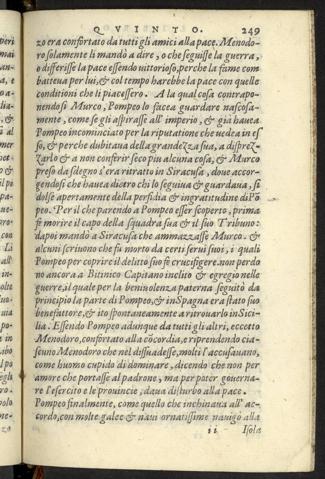 QVINTO. 249
zo era confortato da tutti gli amici alla pace. Menodo-
ro solamente li mandò a dire, o che seguisse la guerra,
o differisse la pace essendo vittorioso, perche la fame com
batteua per lui, & col tempo harebbe la pace con quelle
conditioni che li piacessero. A la qual cosa contrapo-
nendosi Murco, Pompeo lo facea guardare nascosa-
mente, come se gli aspirasse all' imperio, & già haueua
Pompeo incominciato per la riputatione che uedea in es
so, & perche dubitaua della grandezza sua, a disprez-
zarlo & a non conferir seco piu alcuna cosa, & Murco
preso da sdegno s'era ritratto in Siracusa, doue accor-
gendosi che haueua dietro chi lo seguiua & guardaua, si
dolse apertamente della perfidia & ingratitudine di Põ
peo. Per il che parendo a Pompeo esser scoperto, prima
fe morire il capo della squadra sua & il suo Tribuno:
dapoi mandò a Siracusa che ammazzasse Murco. &
alcuni scriuono che fu morto da certi serui suoi, i quali
Pompeo per coprire il delitto suo fe crucifigere. non perdo
nò ancora a Bitinico Capitano inclito & egregio nelle
guerre, il quale per la beniuolenza paterna seguitò da
principio la parte di Pompeo, & in Spagna era stato suo
benefattore, & ito spontaneamente a ritrouarlo in Sici-
lia. Essendo Pompeo adunque da tutti gli altri, eccetto
Menodoro, confortato alla cõcordia, e riprendendo cia-
scuno Menodoro che nel dissuadesse, molti l'accusauano,
come huomo cupido di dominare, dicendo che non per
amore che portasse al padrone, ma per poter gouerna-
re l'esercito e le prouincie, daua disturbo alla pace.
Pompeo finalmente, come quello che inchinaua all' ac-
cordo, con molte galee & naui ornatissime nauigò alla
ii Isola